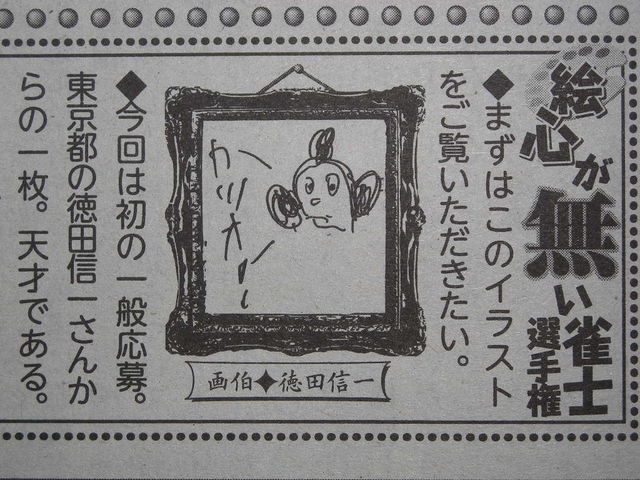 絵心が無い雀士
選手権
◆まずはこのイラスト
をご覧いただきたい。
カツオ〜
画伯◆徳田信一
◆今回は初の一般応募。
東京都の徳田信一さんか
らの一枚。天才である。